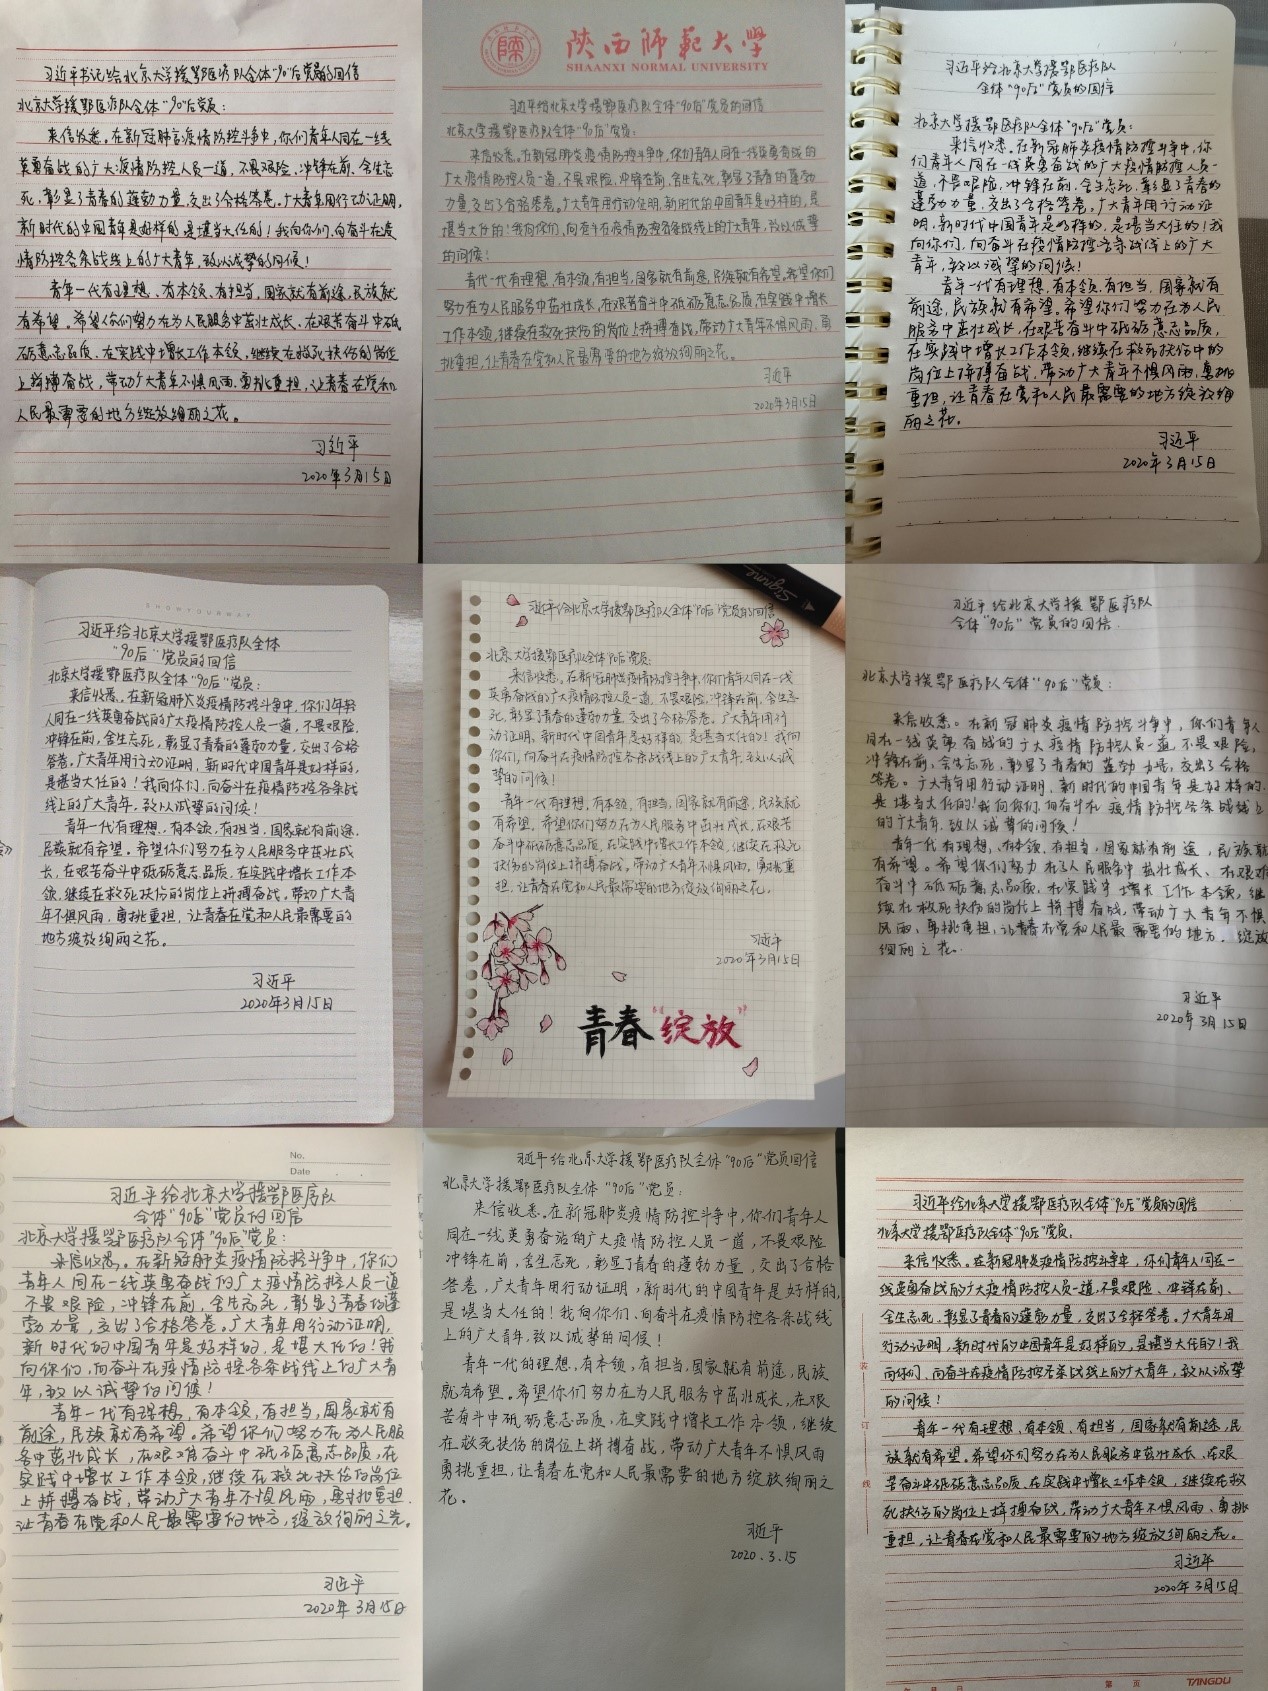 习近平书记给北京大学援鄂医疗队全体“90”后党员的回信
北京大学援鄂医疗队全体“90”后党员：
来信收悉。在新冠肺炎疫情防控斗争中，你们青年人同在一线
英勇奋战的广大疫情防控人员一道，不畏艰险，冲锋在前，舍生忘
死，彰显了青春的蓬勃力量，交出了合格答卷。广大青年用行动证明，
新时代的中国青年是好样的，是堪当大任的！我向你们、向奋斗在疫
情防控各条战线上的广大青年，致以诚挚的问候！
青年一代有理想、有本领、有担当，国家就有前途，民族就
有希望。希望你们努力在为人民服务中茁壮成长、在艰苦奋斗中砥
砺意志品质、在实践中增长工作本领，继续在救死扶伤的岗位
上拼搏奋战，带动广大青年不惧风雨、勇挑重担，让青春在党和
人民最需要的地方绽放绚丽之花。
习近平
2020年3月15日
陕西师范大学
SHAANXI NORMAL UNIVERSITY
习近平给北京大学援鄂医疗队全体“90后”党员的回信
北京大学援鄂医疗队全体“90后”党员：
来信收悉。在新冠肺炎疫情防控斗争中，你们青年人同在一线英勇奋战的
广大疫情防控人员一道，不畏艰险，冲锋在前，舍生忘死，彰显了青春的蓬勃
力量，交出了合格答卷。广大青年用行动证明，新时代的中国青年是好样的，是
堪当大任的！我向你们、向奋斗在疫情防控各条战线上的广大青年，致以诚挚
的问候！
青代一代有理想、有本领、有担当，国家就有前途，民族就有希望。希望你们
努力在为人民服务中茁壮成长、在艰苦奋斗中砥砺意志品质、在实践中增长
工作本领，继续在救死扶伤的岗位上拼搏奋战，带动广大青年不惧风雨、勇
挑重担，让青春在党和人民最需要的地方绽放绚丽之花。
习近平
2020年3月15日
习近平给北京大学援鄂医疗队
全体“90后”党员的回信
北京大学援鄂医疗队全体“90后”党员：
来信收悉。在新冠肺炎疫情防控斗争中，你
们青年人同在一线英勇奋战的广大疫情防控人员一
道，不畏艰险，冲锋在前，舍生忘死，彰显了青春的
蓬勃力量，交出了合格答卷，广大青年用行动证
明，新时代中国青年是好样的，是堪当大任的！我
向你们、向奋斗在疫情防控各条战线上的广大
青年，致以诚挚的问候！
青年一代有理想、有本领、有担当，国家就有
前途，民族就有希望。希望你们努力在为人民
服务中茁壮成长，在艰苦奋斗中砥砺意志品质，
在实践中增长工作本领，继续在救死扶伤中的
岗位上拼搏奋战，带动广大青年不惧风雨，勇挑
重担，让青春在党和人民最需要的地方绽放绚
丽之花。
习近平
2020年3月15日
SHOWYOURWAY
习近平给北京大学援鄂医疗队全体
“90后”党员的回信
北京大学援鄂医疗队全体“90后”党员：
来信收悉。在新冠肺炎疫情防控斗争中，你们年轻
人同在一线英勇奋战的广大疫情防控人员一道，不畏艰险，
冲锋在前，舍生忘死，彰显了青春的蓬勃力量，交出了合格
答卷，广大青年用行动证明，新时代中国青年是好样的，
是堪当大任的！我向你们、向奋斗在疫情防控各条战
线上的广大青年，致以诚挚的问候！
青年一代有理想，有本领，有担当，国家就有前途，
民族就有希望。希望你们努力在为人民服务中茁壮成
长，在艰苦奋斗中砥砺意志品质，在实践中增长工作本
领，继续在救死扶伤的岗位上拼搏奋战，带动广大青
年不惧风雨，勇挑重担，让青春在党和人民最需要的
地方绽放绚丽之花。
习近平
2020年3月15日
习近平给北京大学援鄂医疗队全体“90后”党员的回信
北京大学援鄂医疗队全体“90后”党员：
来信收悉。在新冠肺炎疫情防控斗争中，你们青年人同在一线
英勇奋战的广大疫情防控人员一道，不畏艰险，冲锋在前，舍生忘
死，彰显了青春的蓬勃力量，交出了合格答卷。广大青年用行
动证明，新时代中国青年是好样的，是堪当大任的！我向
你们、向奋斗在疫情防控各条战线上的广大青年，致以诚
挚的问候！
青年一代有理想，有本领，有担当，国家就有前途，民族就
有希望。希望你们努力在为人民服务中茁壮成长，在艰苦
奋斗中砥砺意志品质，在实践中增长工作本领，继续在救死
扶伤的岗位上拼搏奋战，带动广大青年不惧风雨，勇挑重
担，让青春在党和人民最需要的地方绽放绚丽之花。
习近平
2020年3月15日
青春“绽放”
习近平给北京大学援鄂医疗队
全体“90后”党员的回信
北京大学援鄂医疗队全体“90后”党员：
来信收悉。在新冠肺炎疫情防控斗争中，你们青年人
同在一线英勇奋战的广大疫情防控人员一道，不畏艰险，
冲锋在前，舍生忘死，彰显了青春的蓬勃力量，交出了合格
答卷。广大青年用行动证明，新时代的中国青年是好样的，
是堪当大任的！我向你们、向奋斗在疫情防控各条战线上
的广大青年，致以诚挚的问候！
青年一代有理想、有本领、有担当，国家就有前途，民族就
有希望。希望你们努力在为人民服务中茁壮成长、在艰难
奋斗中砥砺意志品质，在实践中增长工作本领，继
续在救死扶伤的岗位上拼搏奋战，带动广大青年不惧
风雨、勇挑重担，让青春在党和人民最需要的地方绽放
绚丽之花。
习近平
2020年3月15日
No.
Date
习近平给北京大学援鄂医疗队
全体“90后”党员的回信
北京大学援鄂医疗队全体“90后”党员：
来信收悉。在新冠肺炎疫情防控斗争中，你们
青年人同在一线英勇奋战的广大疫情防控人员一道
不畏艰险，冲锋在前，舍生忘死，彰显了青春的蓬
勃力量，交出了合格答卷。广大青年用行动证明，
新时代的中国青年是好样的，是堪大任的！我
向你们，向奋斗在疫情防控各条战线上的广大青
年，致以诚挚的问候！
青年一代有理想，有本领，有担当，国家就有
前途，民族就有希望。希望你们努力在为人民服
务中茁壮成长，在艰难奋斗中砥砺意志品质，在
实践中增长工作本领，继续在救死扶伤的岗位
上拼搏奋战，带动广大青年不惧风雨，勇挑重担，
让青春在党和人民最需要的地方，绽放绚丽之花。
习近平
2020年3月15日
习近平给北京大学援鄂医疗队全体“90后”党员回信
北京大学援鄂医疗队全体“90后”党员：
来信收悉。在新冠肺炎疫情防控斗争中，你们青年人
同在一线英勇奋战的广大疫情防控人员一道，不畏艰险
冲锋在前，舍生忘死，彰显了青春的蓬勃力量，交出了合格
答卷，广大青年用行动证明，新时代的中国青年是好样的，
是堪当大任的！我向你们、向奋斗在疫情防控各条战线
上的广大青年，致以诚挚的问候！
青年一代的理想，有本领，有担当，国家就有前途，民族
就有希望。希望你们努力在为人民服务中茁壮成长，在艰
苦奋斗中砥砺意志品质，在实践中增长工作本领，继续
在救死扶伤的岗位上拼搏奋战，带动广大青年不惧风雨
勇挑重担，让青春在党和人民最需要的地方绽放绚丽之
花。
习近平
2020.3.15
习近平给北京大学援鄂医疗队全体“90后”党员的回信
北京大学援鄂医疗队全体“90后”党员：
来信收悉。在新冠肺炎疫情防控斗争中，你们青年人同在一
线英勇奋战的广大疫情防控人员一道，不畏艰险、冲锋在前、
舍生忘死，彰显了青春的蓬勃力量，交出了合格答卷。广大青年用
行动证明，新时代的中国青年是好样的，是堪当大任的！我
向你们、向奋斗在疫情防控各条战线上的广大青年，致以诚挚
的问候！
青年一代有理想、有本领、有担当，国家就有前途，民
族就有希望。希望你们努力在为人民服务中茁壮成长、在艰
苦奋斗中砥砺意志品质、在实践中增长工作本领，继续在救
死扶伤的岗位上拼搏奋战，带动广大青年不惧风雨、勇挑
重担，让青春在党和人民最需要的地方绽放绚丽之花。
习近平
2020年3月15日
装
订
线
第 页
TANGDU